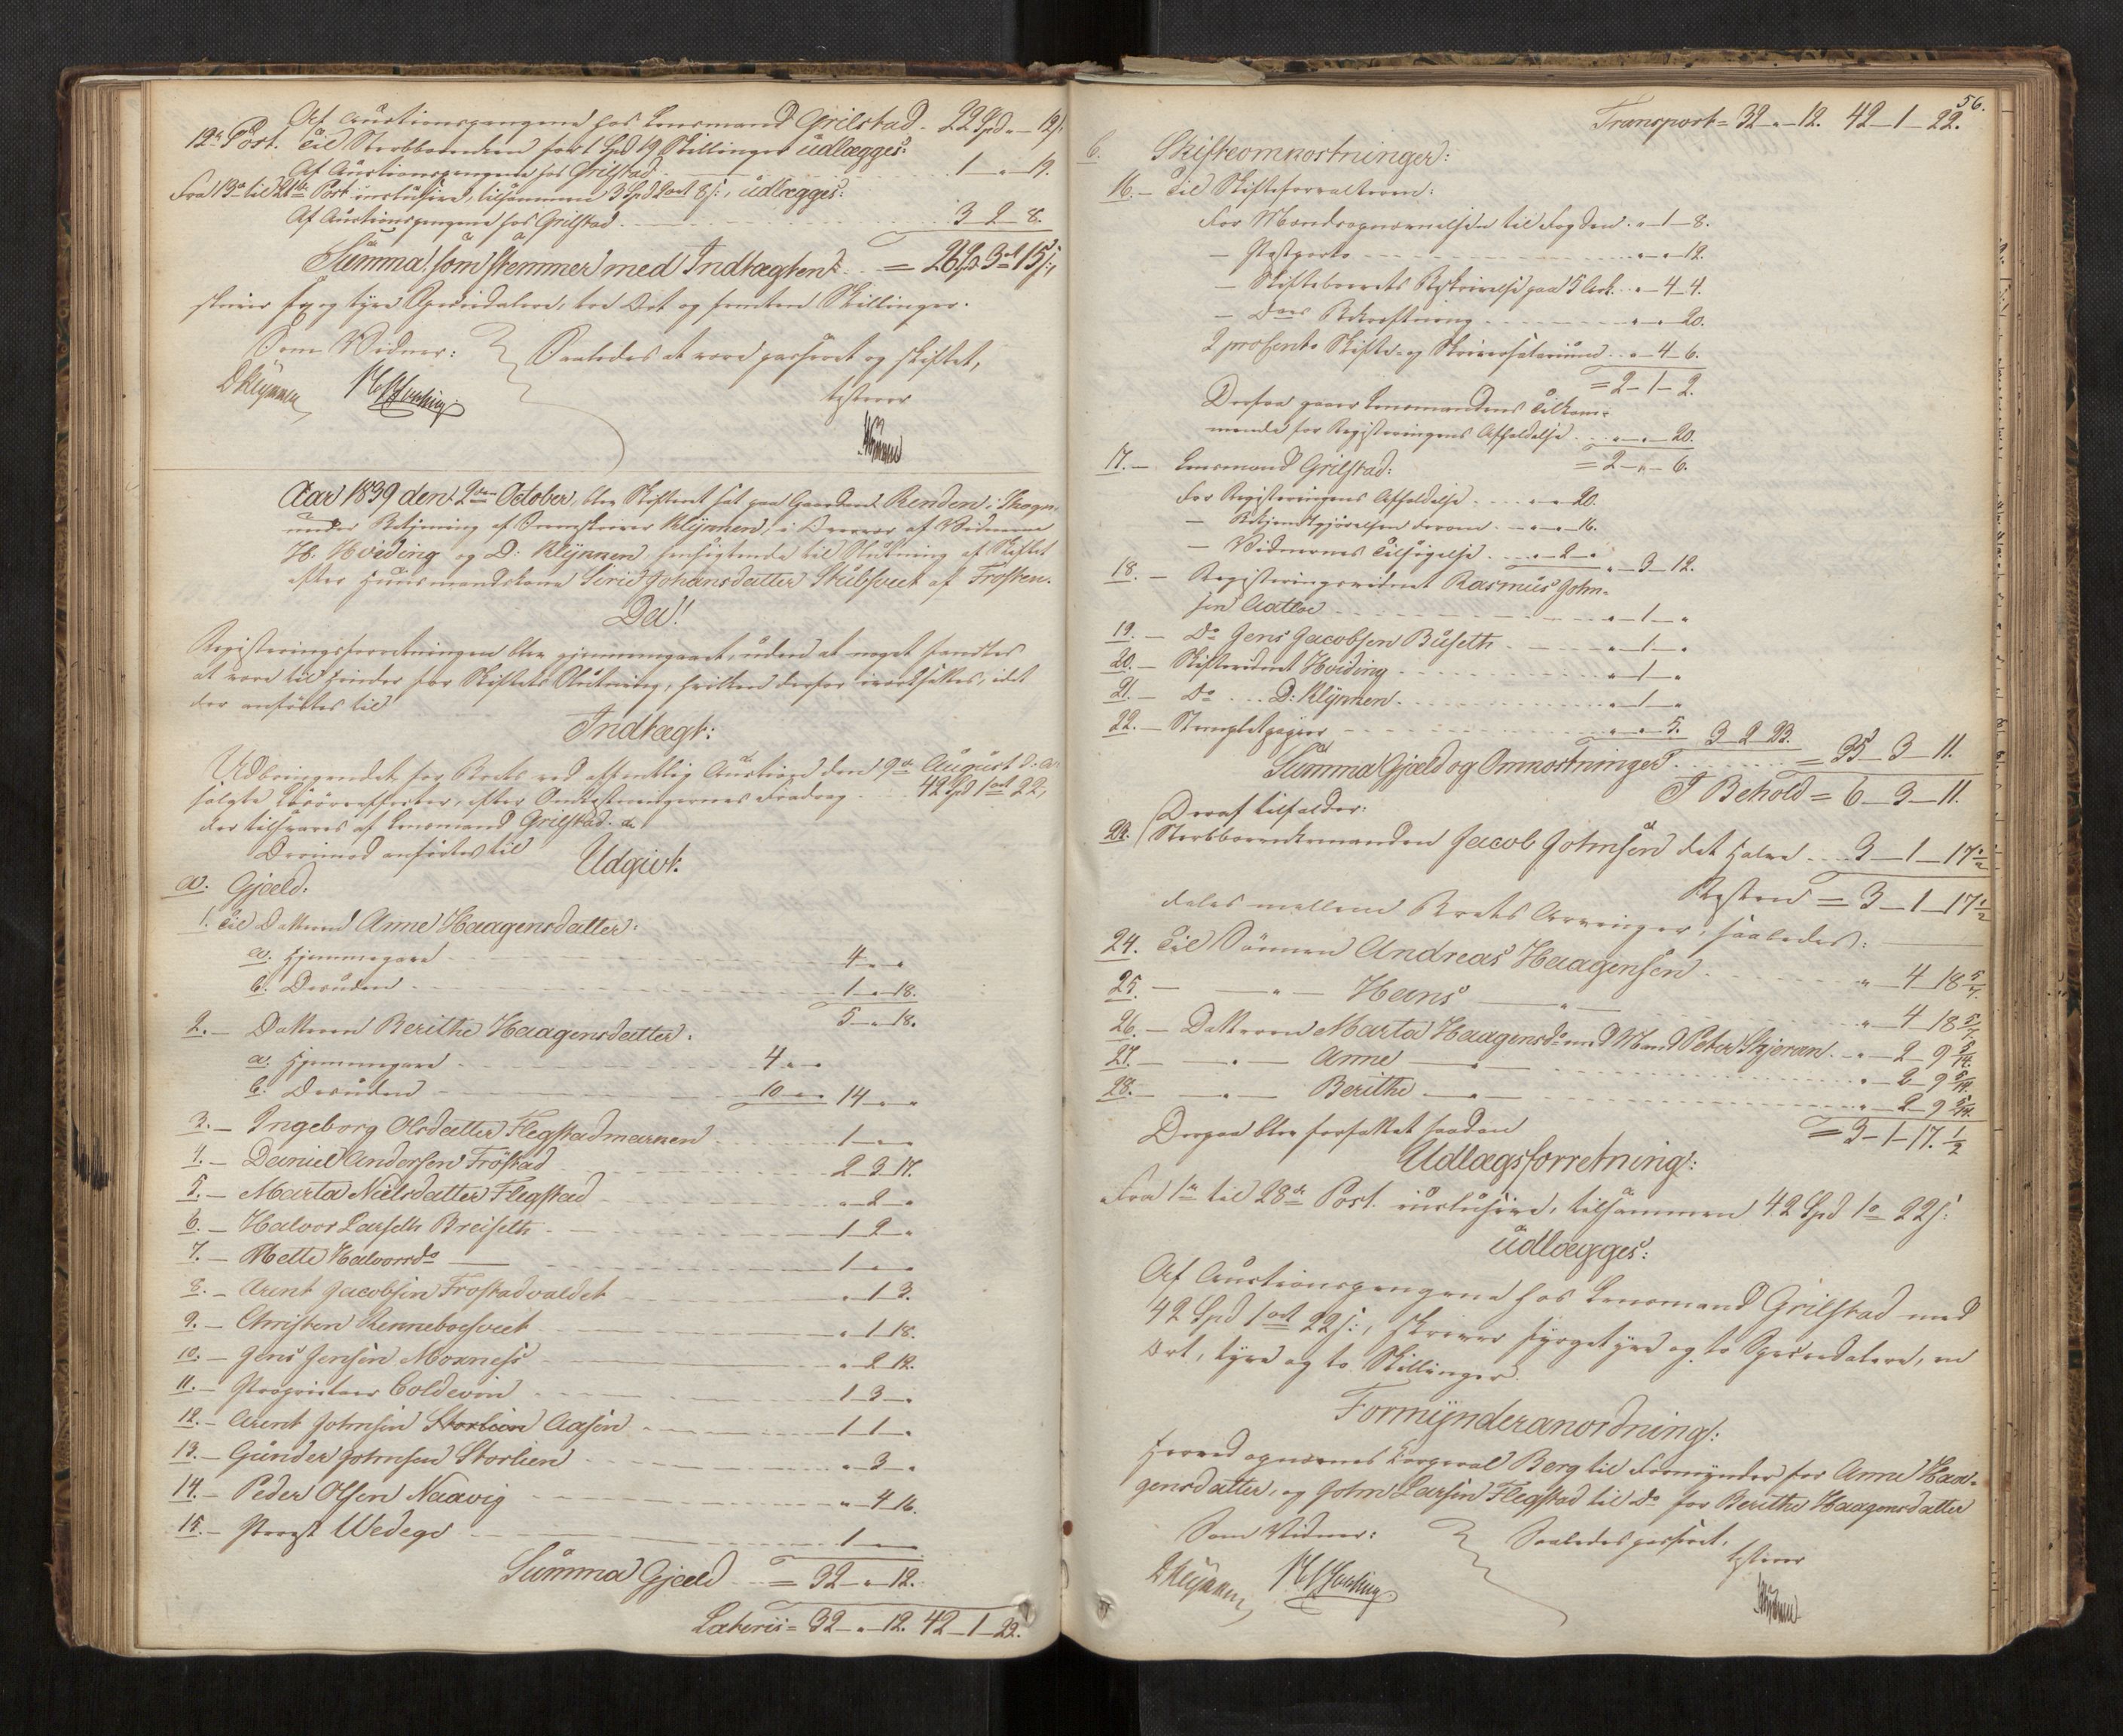 Af Auctionspengene hos Lensmand Grilstad - 22 Spd " - 12 s.
12te Post. Til Sterbboenken for 1 Spd 19 Skillinger udlægges:
Af Auctionspengene hos Grilstad - 1 - " - 19.
Fra 13de til 21de Post inclusive, tilsammen 3 Spd 2 ort 8 s:, udlægges:
Af Auctionspengene hos Grilstad . . . 3 - 2 - 8.
Summa, som stemmer med Indtægten . . = 26 Spd 3 ort 15 s:,
skriver sex og tyve Speciedalere, tre Ort og femten Skillinger.
Som Vidner: Saaledes at være passeret og skiftet,
D Klÿnnen H. Hveding testerer
Aar 1839 den 2den October, blev Skifteret sat paa Gaarden Renden i Skogn
under Betjening af Sorenskriver Klÿnnen, i Overvær af Vidnerne
H. Hveding og D. Klÿnnen, hensigtende til Slutning af Skiftet
efter Huusmandskone Sirie Johansdatter Stubsveet af Frosten.
Da!
Registreringsforretningen blev gjennemgaaet, uden at noget fandtes
at være til Hinder for Skiftets Slutning, hvilken derfor iværksattes, idet
der anførtes til
Indtægt:
Udbringendet for Boets ved offentlig Auction den 9de August d. A.
solgte Løsøreeffecter, efter Omkostningernes Fradrag . . . 42 Spd 1 ort 22,
der tilsvares af Lensmand Grilstad.
Derimod anførtes til
Udgivt:
a. Gjæld:
1. Til Datteren Anne Haagensdatter:
a. Hjemmegave - 4 - " - "
b. Desuden - 1 - " - 18.
5 - " - 18.
2. - Datteren Berithe Haagensdatter:
a. Hjemmegave - 4 - " - "
b. Desuden - 10 - " - " 14 - " - "
3. - Ingeborg Olsdatter Flegstadmarken - 1 - " - "
4. - Daniel Andersen Fröstad - 2 - 3 - 17.
5. - Marta Nielsdatter Flegstad - " - 2 - "
6. - Halvor Larsen Breiseth - 1 - 2 - "
7. - Mette Halvorsd: - 1 - " - "
8. - Arent Jacobsen Frostadvaldet - " 1 3.
9. - Christen Renneboesveet - " 1 - 18.
10. - Jens Jensen Moxness - " 2 - 12.
11. - Proprietær Coldevin - 1 - 3 - "
12. - Arent Johnsen Storlien Aasen - 1 - 1 - "
13. - Gunder Johnsen Storlien - " - 3 - "
14. - Peder Olsen Naavig - " - 4 - 16.
15. - Provst Wedege - 1 - " - "
Summa Gjæld - = 32 - " - 12.
Lateris = 32 - " - 12. 42 - 1 - 22.
56.
Transport = 32 - " - 12. 42 - 1 - 22.
b. Skifteomkostninger:
16. - Til Skifteforvalteren:
For Mændsopnævnelsen til Fogden . " - 1 - 8.
- Postporto - " - " - 12.
- Skiftebrevets Beskrivelse paa 5 Ark . . " - 4 - 4.
- Dets Bekræftning - " - " - 20.
2 procento Skifte- og Skriversalarium . . " - 4 - 6.
= 2 - 1 - 2.
Derfra gaaer Lensmandens Tilkom-
mende for Registreringens Afholdelse . . " - " - 20.
= 2 - " - 6.
17. - Lensmand Grilstad:
For Registreringens Afholdelse - " - " - 20.
- Bekjendtgjørelsen derom - " - " - 16.
- Vidnernes Tilsigelse - " - 2 - " " - 3 - 12.
18. - Registreringsvidnet Rasmus John-
sen Aatloe - " - 1 - "
19. - Do Jens Jacobsen Buseth - " - 1 - "
20. - Skiftevidnet Hveding - " - 1 - "
21. - Do . . D: Klÿnnen - " - 1 - "
22. - Stemplet Papiir - " - " - 5. 3 - 2 - 23.
Summa Gjæld og Omkostninger . . = 35 - 3 - 11.
I Behold = 6 - 3 - 11.
Deraf tilfalder:
23. Sterbboenkemanden Jacob Johnsen det Halve . . 3 - 1 - 17 1/2
Resten = 3 - 1 - 17 1/2
deles mellem Boets Arvinger, saaledes:
24. Til Sønnen Andreas Haagensen - " - 4 18 5/7.
25. - " - Hans - " - " - 4 18 5/7.
26. - Datteren Marta Haagensd: med Mand Peter Skjeran . . " - 2 - 9 5/14.
27. - " - Anne - " - " - 2 - 9 5/14.
28. - " - Berithe - " - " - 2 - 9 5/14.
= 3 - 1 - 17. 1/2
Derpaa blev forfattet saadan
Udlægsforretning:
Fra 1ste til 28de Post. inclusive, tilsammen 42 Spd 1 o 22 s:
udlægges:
Af Auctionspengene hos Lensmand Grilstad med
42 Spd 1 ort 22 s:, skriver fyrgetyve og to Speciedalere, en
Ort, tyve og to Skillinger.
Formÿnderanordning:
Herved opnævnes Corporal Berg til Formynder for Anne Haa-
gensdatter, og John Larsen Flegstad til Do for Berithe Haagensdatter
Som Vidner: Saaledes passeret,
D Klÿnnen H. Hveding testerer